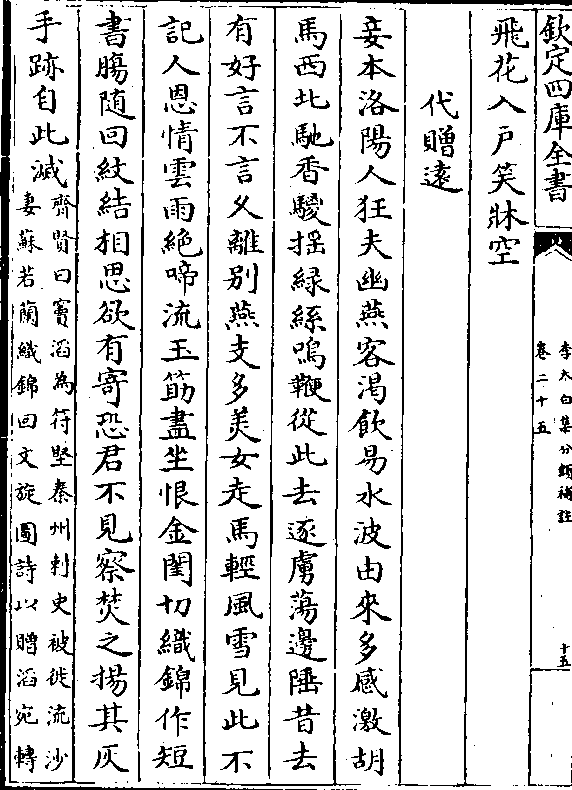 欽定四庫全書
李太白集分類補註
卷二十五
十五
飛花入戶笑牀空
代贈遠
妾本洛陽人狂夫幽燕客渴飲易水波由來多感激胡
馬西北馳香騣揺緑絲鳴鞭從此去逐虜蕩邊陲昔去
有好言不言久離别燕支多美女走馬輕風雪見此不
記人恩情雲雨絶啼流玉筯盡坐恨金閨切織錦作短
書腸隨回紋結相思欲有寄恐君不見察焚之揚其灰
手跡自此滅
齊賢曰竇滔為苻堅秦州刺史被徙流沙
妻蘇若蘭織錦回文旋圖詩以贈滔宛轉